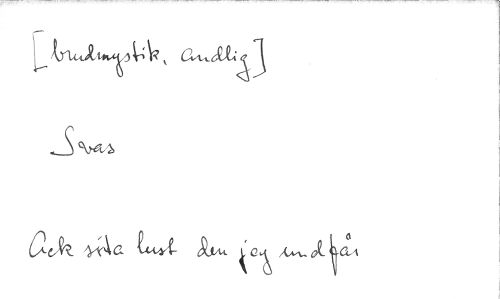 [brudmystik, andlig]
Svas
Ack söta lust den jag undfår